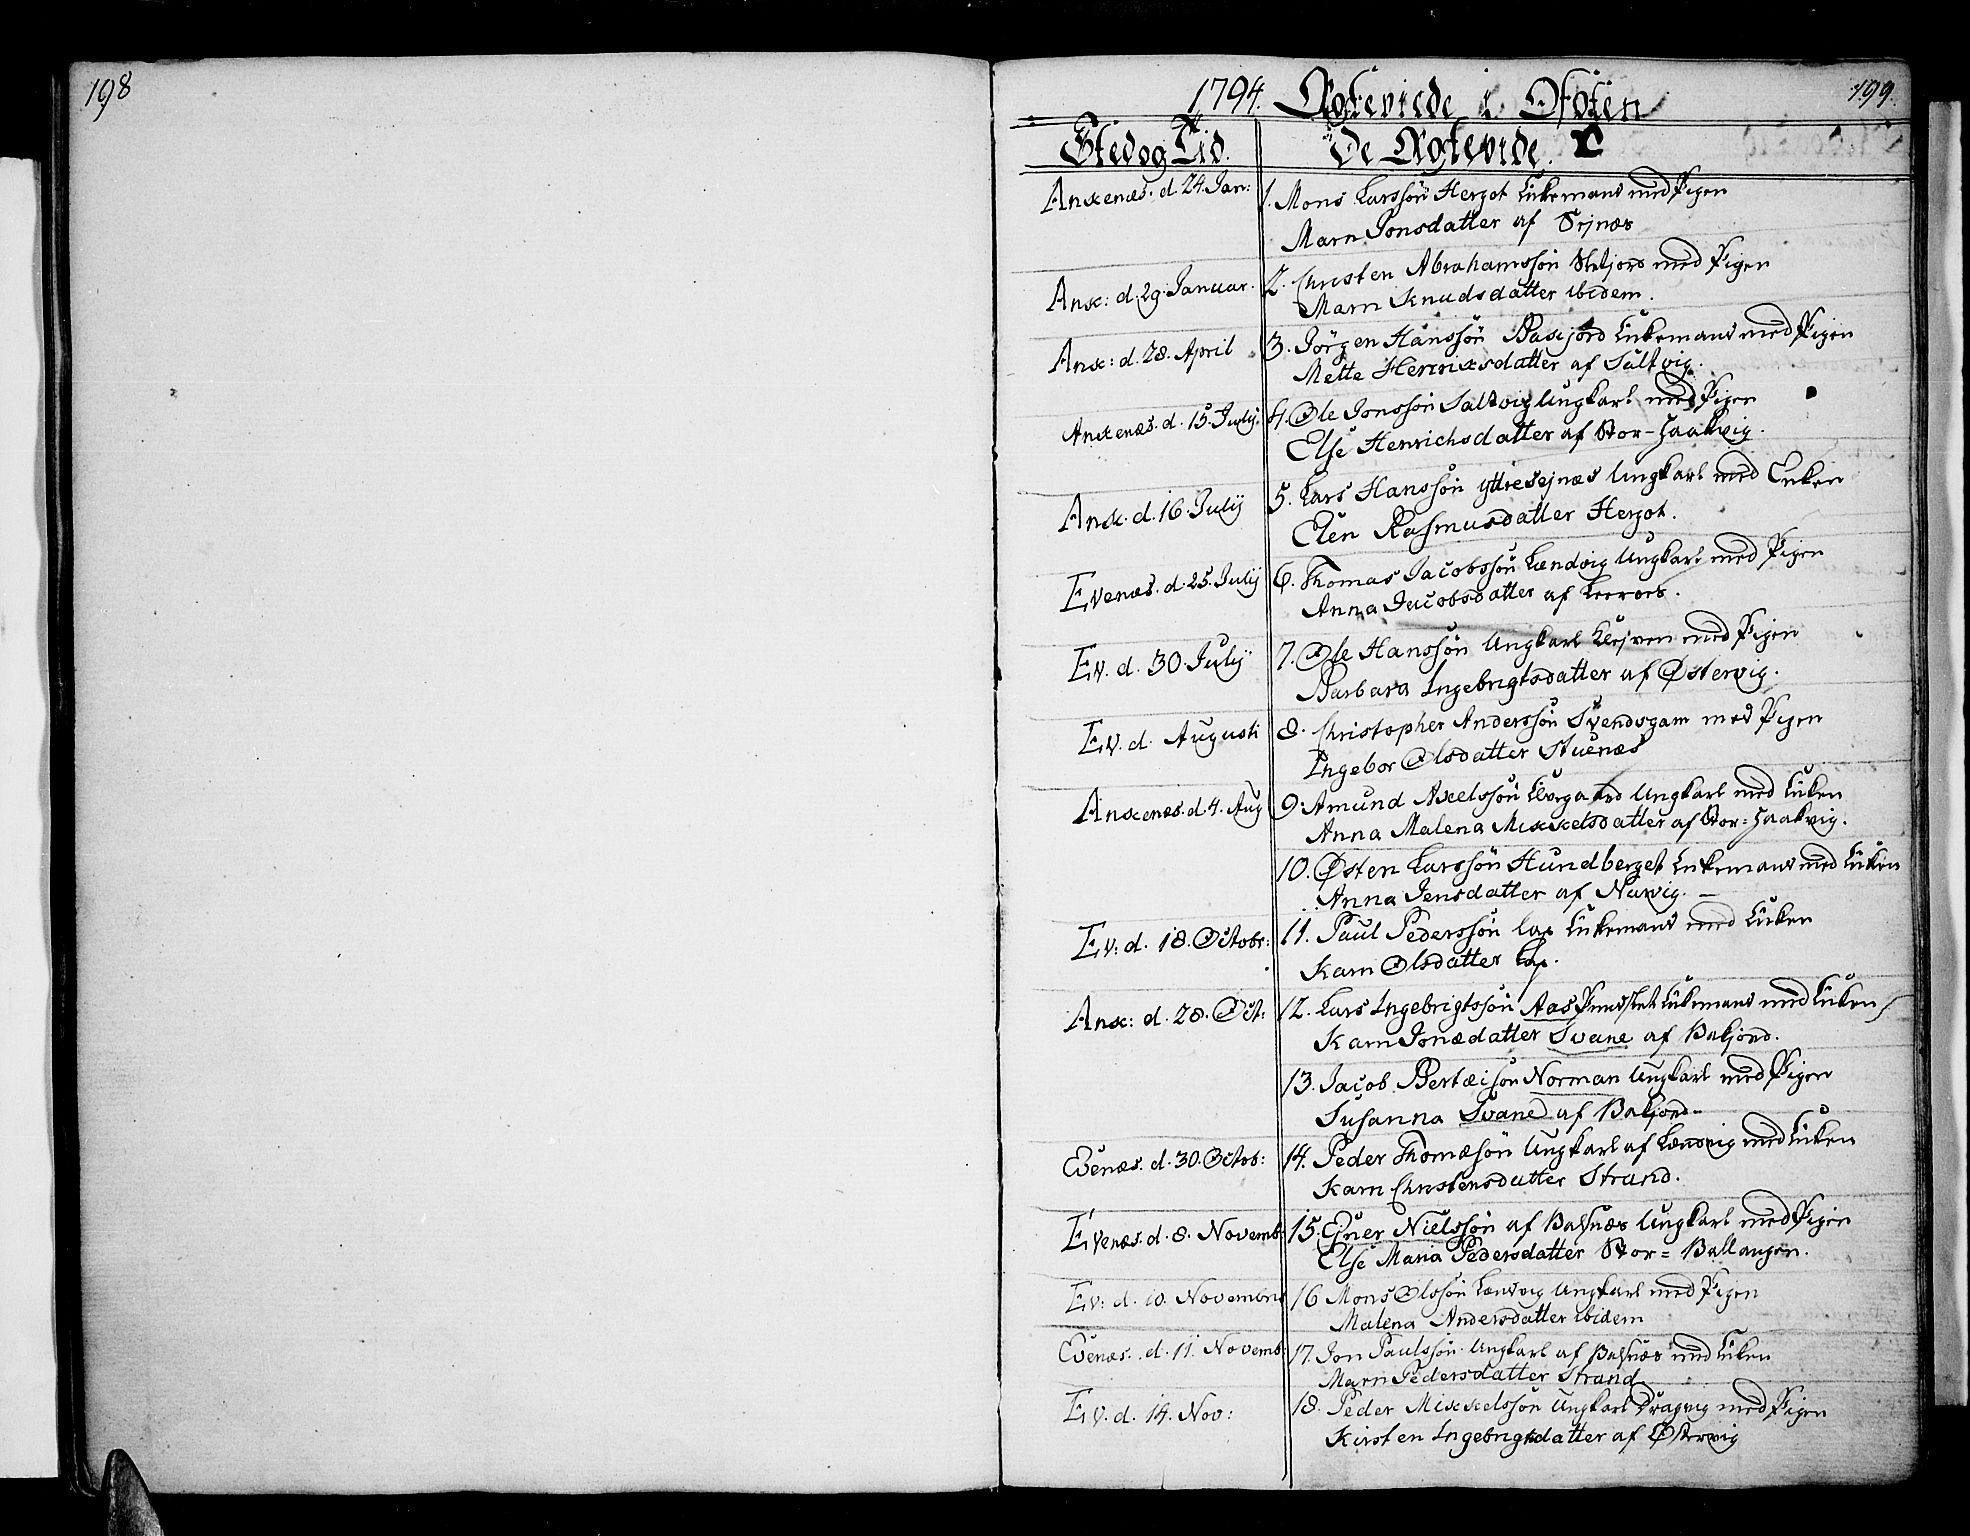 198
1794. Ægteviede i Ofoten
199.
Sted og Tid.
De Ægteviede.
Ankenæs. d. 24. Jan:
1. Mons Larssøn Hergot Enkemand med Pigen
Marn Jonsdatter af Sejnæs
Ank: d. 29. Januar.
2. Christen Abrahamssøn Skjord med Pigen
Marn Knudsdatter ibidem.
Ank: d. 28. April
3. Jörgen Hanssön Basjord Enkemand med Pigen
Mette Henriksdatter af Saltvig.
Ankenæs. d. 15. Julij.
4. Ole Jonssön Saltvig Ungkarl med Pigen
Else Henrichsdatter af Stor-Haakvig.
Ank. d. 16. Julij
5. Lars Hanssön yttre Sejnæs Ungkarl med Enken
Elen Rasmusdatter Hergot.
Evenæs. d. 25. Julij
6. Thomas Jacobssön Lændvig Ungkarl med Pigen
Anna Jacobsdatter af
Ev. d. 30. Julij
7. Ole Hanssön Ungkarl Klejven med Pigen
Barbara Ingebrigtsdatter af Østervig.
Ev. d. Augusti
8. Christopher Anderssön Svendsgam med Pigen
Ingebor Olsdatter Stuenæs
Ankenæs. d. 4. Aug
9. Amund Axelssön Ungkarl med Enken
Anna Malena Mikkelsdatter af Stor=Haakvig.
10. Østen Larssön Hundberget Enkemand med Enken
Anna Jensdatter af Narvig.
Ev: d. 18. Octobr:
11. Paul Pederssön lap Enkemand med Enken
Karn Olsdatter Lap.
Ank: d. 28. Oct:
12. Lars Ingebrigtssön Aas Enkemand med Enken
Karn Jonædatter Svane af Bakjord.
13. Jacob Bertæisön Norman Ungkarl med Pigen
Susanna Svane af Bakjord.
Evenæs. d. 30. Octob:
14. Peder Thomæsön Ungkarl af Lændvig med Enken
Karn Christensdatter Strand.
Evenæs. d. 8. Novemb:
15. Ejner Nielssøn af Balsnæs Ungkarl med Pigen
Else Maria Pedersdatter Stor=Ballangen.
Ev: d. 10. Novembris
16 Mons Olssön Lændvig Ungkarl med Pigen
Malena Andersdatter ibidem
Evenæs. d. 11. Novemb:
17. Jon Paulssön Ungkarl af Balsnæs med Enken
Marn Pedersdatter Strand
Ev. d. 14. Nov:
18. Peder Mikkelssön Ungkarl Dragvig med Pigen
Kirsten Ingebrigtsdatter af Østervig